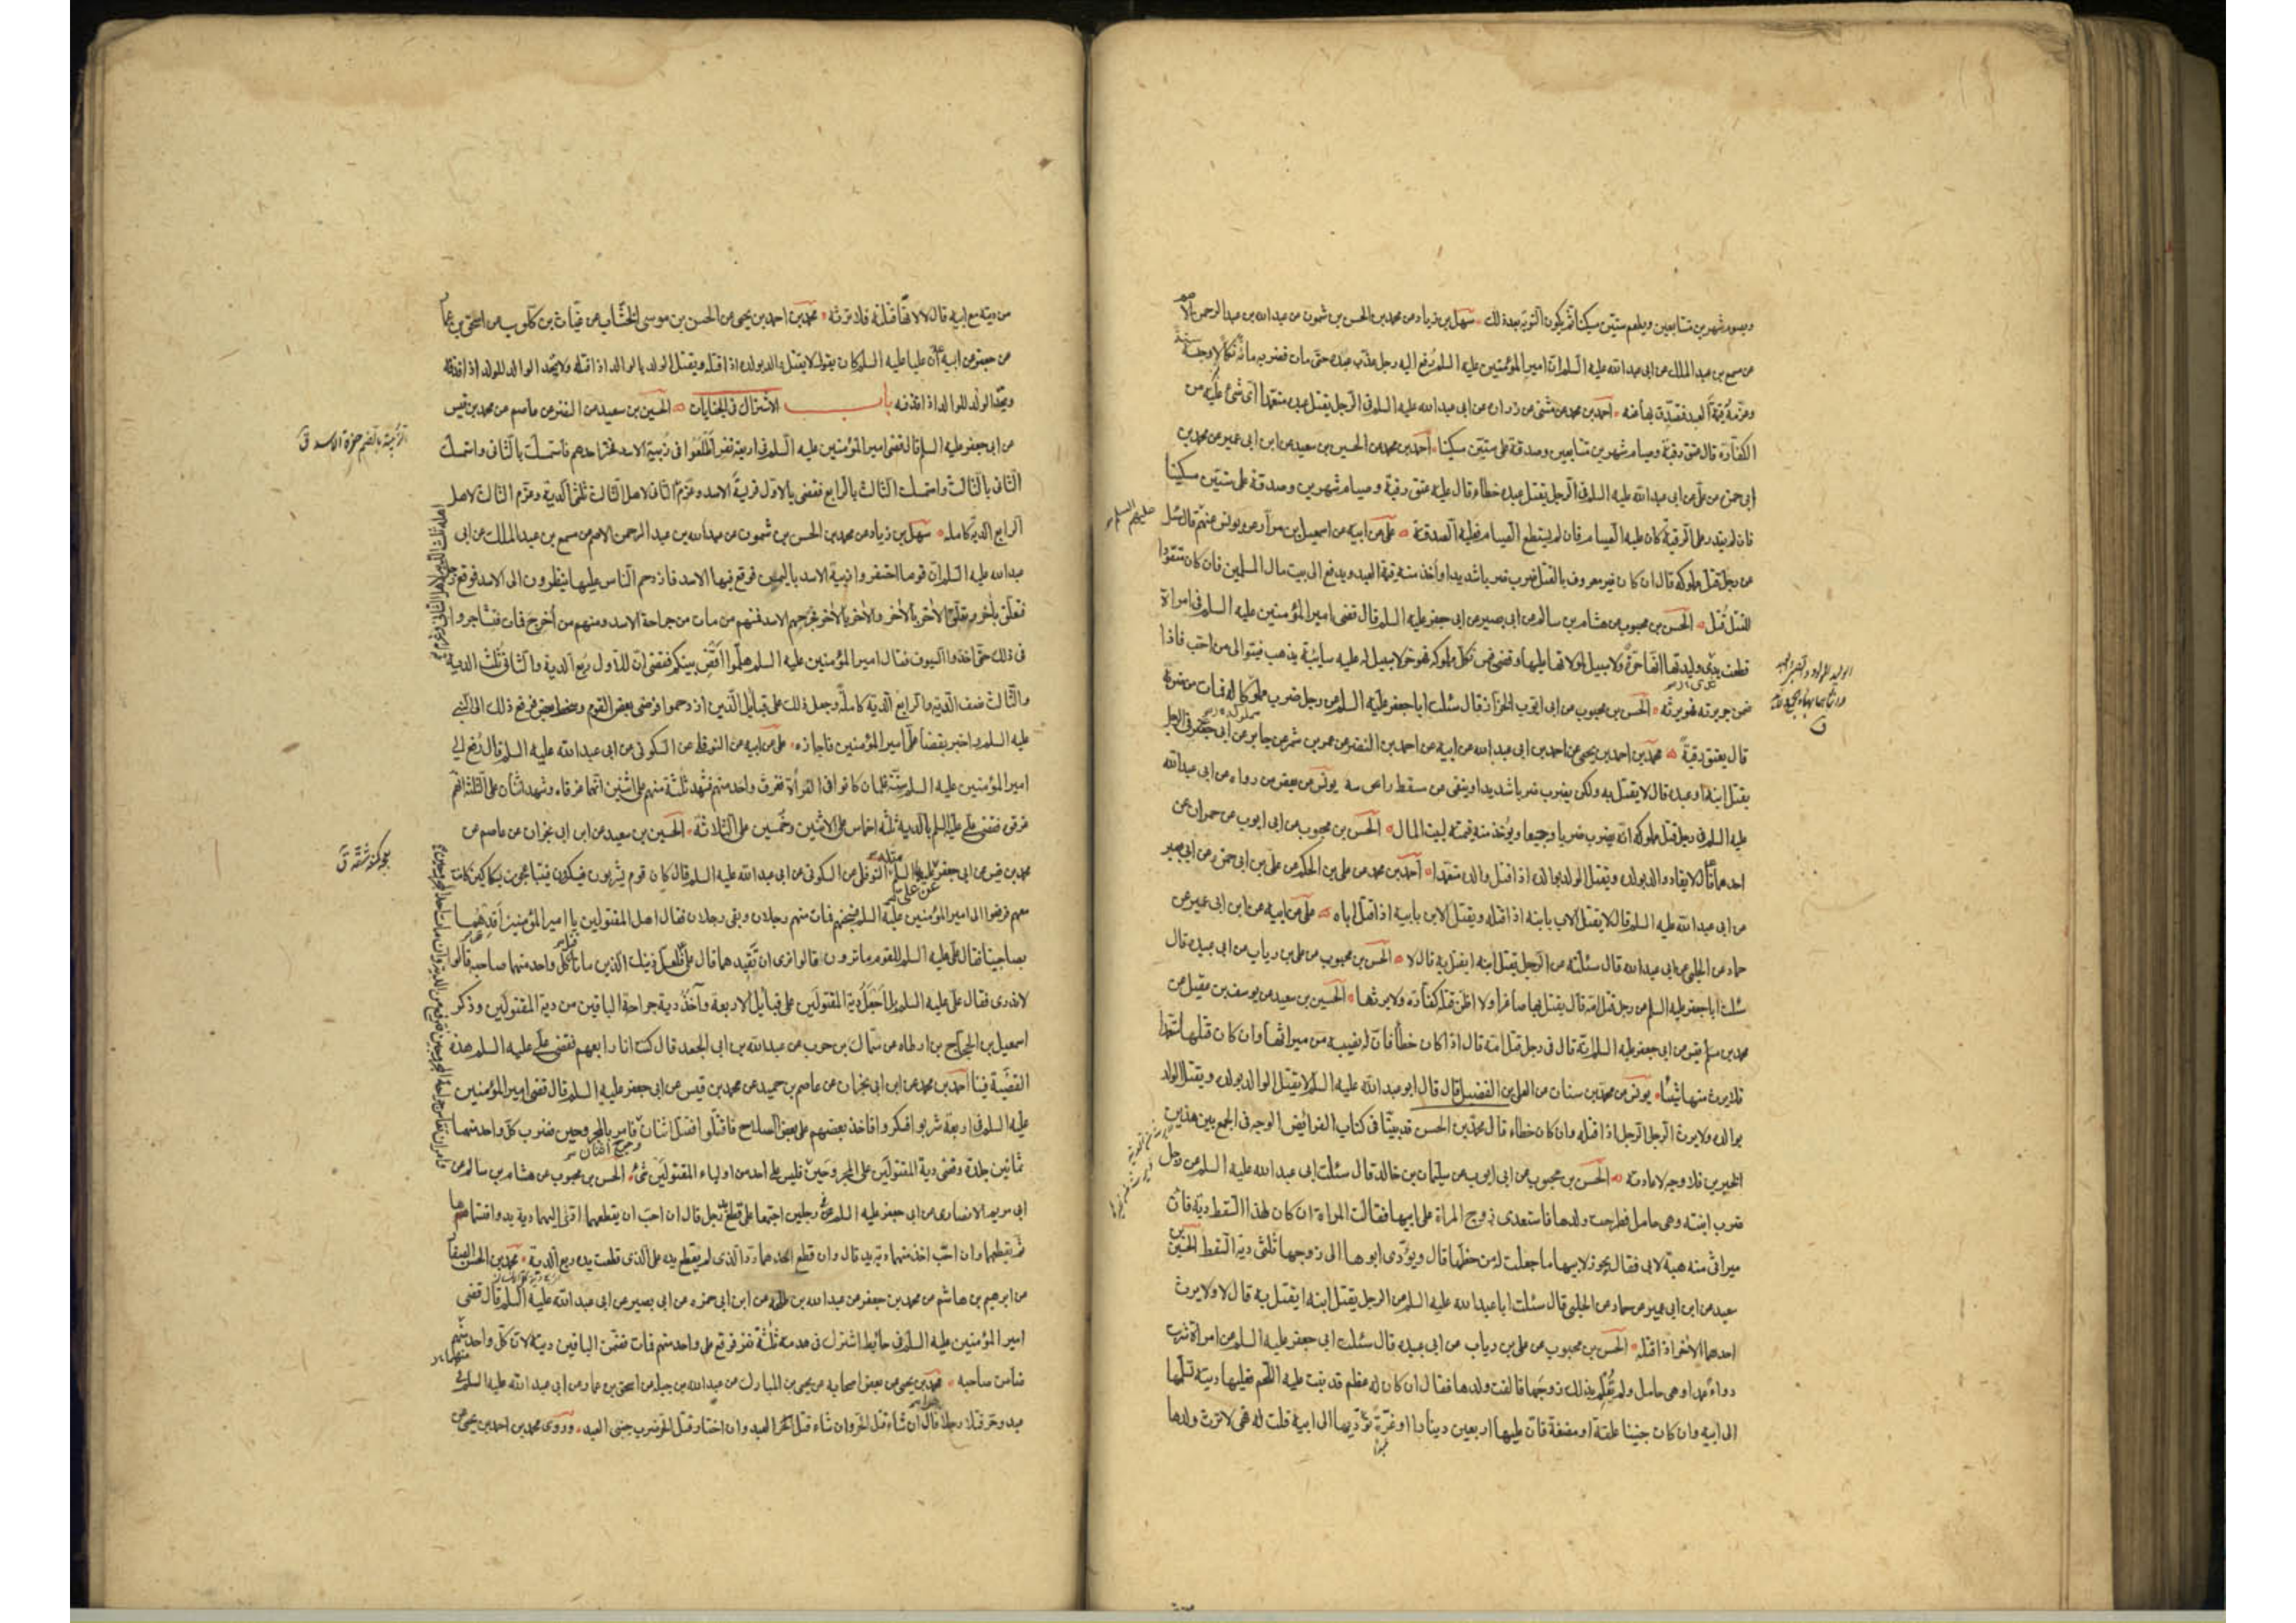 ويصوم شهرين متتابعين ويطعم ستين مسكينا ثم يكون التوبة بعد ذلك سهل بن زياد عن محمد بن الحسن بن شمون عن عبد الله بن عبد الرحمن الاصم
عن مسمع بن عبد الملك عن ابى عبد الله عليه السلم ان امير المؤمنين عليه السلم رفع اليه رجل عذب عبده حتى مات فضربه مائة نكالا وحبسه سنة
وغرمه قيمة العبد فتصدق بها عنه احمد بن محمد عن مثنى عن زرارة عن ابى عبد الله عليه السلم فى الرجل يقتل عبده متعمدا اى شئ عليه من
الكفارة قال عتق رقبة وصيام شهرين متتابعين وصدقة على ستين مسكينا احمد بن محمد عن الحسين بن سعيد عن ابن ابى عمير عن محمد بن
ابى حمزة عن على عن ابى عبد الله عليه السلم فى الرجل يقتل عبده خطاء قال عليه عتق رقبة وصيام شهرين وصدقة على ستين مسكينا
فان لم يقدر على الرقبة كان عليه الصيام فان لم يستطع الصيام فعليه الصدقة على عن ابيه عن اسمعيل بن مرار عن يونس عنهم قال سئل
عليهم السلم
عن رجل قتل مملوكه قال ان كان غير معروف بالقتل ضرب ضربا شديدا واخذ منه قيمة العبد ويدفع الى بيت مال المسلمين فان كان متعودا
للقتل قتل الحسن بن محبوب عن هشام بن سالم عن ابى بصير عن ابى جعفر عليه السلم قال قضى امير المؤمنين عليه السلم فى امراة
قطعت ثدى وليدتها انها حرة ولا سبيل لمولاتها عليها وقضى فيمن نكل مملوكه فهو حر لا سبيل له عليه سائبة يذهب فيتوالى من احب فاذا
ضمن جريرته فهو يرثه الحسن بن محبوب عن ابى ايوب الخزاز قال سئلت ابا جعفر عليه السلم عن رجل ضرب مملوكا له فمات من ضربه
قال يعتق رقبة محمد بن احمد بن يحيى عن احمد بن ابى عبد الله عن ابيه عن احمد بن النضر عن عمرو بن شمر عن جابر عن ابى جعفر فى الرجل
يقتل ابنه او عبده قال لا يقتل به ولكن يضرب ضربا شديدا وينفى من مسقط راسه يونس عن بعض من رواه عن ابى عبد الله
عليه السلم فى رجل قتل مملوكه انه يضرب ضربا وجيعا ويؤخذ منه قيمته لبيت المال الحسن بن محبوب عن ابى ايوب عن حمران عن
احدهما قال لا يقاد والد بولده ويقتل الولد بوالده اذا قتل والده متعمدا احمد بن محمد عن على بن الحكم عن على بن ابى حمزة عن ابى بصير
عن ابى عبد الله عليه السلم قال لا يقتل الاب بابنه اذا قتله ويقتل الابن بابيه اذا قتل اباه على عن ابيه عن ابن ابى عمير عن
حماد عن الحلبى عن ابى عبد الله قال سئلته عن الرجل يقتل ابنه ايقتل به قال لا الحسن بن محبوب عن على بن رياب عن ابى عبيده قال
سئلت ابا جعفر عليه السلم عن رجل قتل امه قال يقتل بها صاغرا ولا اظن قتله كفارة ولا يرثها الحسين بن سعيد عن يوسف بن عقيل عن
محمد بن قيس عن ابى جعفر عليه السلم انه قال فى رجل قتل امه قال اذا كان خطأ فان له نصيبه من ميراثها وان كان قتلها متعمدا
فلا يرث منها شيئا يونس عن محمد بن سنان عن العلا بن الفضيل قال قال ابو عبد الله عليه السلم لا يقتل الوالد بولده ويقتل الولد
بوالده ولا يرث الرجل الرجل اذا قتله وان كان خطاء قال محمد بن الحسن قد بينا فى كتاب الفرائض الوجه فى الجمع بين هذين
الخبرين فلا وجه لاعادته الحسن بن محبوب عن ابى ايوب عن سليمان بن خالد قال سئلت ابى عبد الله عليه السلم عن رجل
ضرب ابنته وهى حامل فطرحت ولدها فاستعدى زوج المراة على ابيها فقالت المراة ان كان لهذا السقط دية فان
ميراثى منه هبة لابى فقال يجوز لابيها ما جعلت له من حظها قال ويؤدى ابوها الى زوجها ثلثى دية السقط الحسين بن
سعيد عن ابن ابى عمير عن حماد عن الحلبى قال سئلت ابا عبد الله عليه السلم عن الرجل يقتل ابنه ايقتل به قال لا ولا يرث
احدهما الاخر اذا قتله الحسن بن محبوب عن على بن رياب عن ابى عبيده قال سئلت ابى جعفر عليه السلم عن امرأة شربت
دواء عمدا وهى حامل ولم يعلم بذلك زوجها فالقت ولدها فقال ان كان له عظم قد نبت عليه اللحم فعليها دية تسلمها
الى ابيه وان كان جنينا علقة او مضغة فان عليها اربعين دينارا او غرة تؤديها الى ابيه قلت له فهى لا ترث ولدها
من ديته مع ابيه قال لا لانها قتلته فلا ترثه محمد بن احمد بن يحيى عن الحسن بن موسى الخشاب عن غياث بن كلوب عن اسحق بن عمار
عن جعفر عن ابيه ان عليا عليه السلم كان يقول لا يقتل والد بولده اذا قتله ويقتل الولد بالوالد اذا قتله ولا يحد الوالد للولد اذا قذفه
ويحد الولد للوالد اذا قذفه باب الاشتراك فى الجنايات الحسين بن سعيد عن النضر عن عاصم عن محمد بن قيس
عن ابى جعفر عليه السلم قال قضى امير المؤمنين عليه السلم فى اربعة نفر اطلعوا فى زبية الاسد فخر احدهم فاستمسك بالثانى واستمسك
الثانى بالثالث واستمسك الثالث بالرابع فقضى بالاول فريسة الاسد وغرم الثانى لاهل الثالث ثلثى الدية وغرم الثالث لاهل
الرابع الدية كاملة سهل بن زياد عن محمد بن الحسن بن شمون عن عبد الله بن عبد الرحمن الاصم عن مسمع بن عبد الملك عن ابى
عبد الله عليه السلم ان قوما احتفروا زبية الاسد باليمن فوقع فيها الاسد فازدحم الناس عليها ينظرون الى الاسد فوقع رجل
فتعلق باخر وتعلق الاخر بالاخر والاخر بالاخر فجرحهم الاسد فمنهم من مات من جراحة الاسد ومنهم من اخرج فمات فتشاجروا
فى ذلك حتى اخذوا السيوف فقال امير المؤمنين عليه السلم هلموا اقض بينكم فقضى ان للاول ربع الدية والثانى ثلث الدية
والثالث نصف الدية والرابع الدية كاملة وجعل ذلك على قبايل الذين ازدحموا فرضى بعض القوم وسخط بعض فرفع ذلك الى النبى
عليه السلم واخبر بقضاء امير المؤمنين فاجازه على عن ابيه عن النوفلى عن السكونى عن ابى عبد الله عليه السلم قال رفع الى
امير المؤمنين عليه السلم ستة غلمان كانوا فى الفرات فغرق واحد منهم فشهد ثلثة منهم على اثنين انهما غرقاه وشهد اثنان على الثلثة انهم
غرقوه فقضى على عليه السلم بالدية ثلثة اخماس على الاثنين وخمسين على الثلاثة الحسين بن سعيد عن ابن ابى نجران عن عاصم عن
محمد بن قيس عن ابى جعفر عليه السلم مثله النوفلى عن السكونى عن ابى عبد الله عليه السلم قال كان قوم يشربون فيسكرون فيتباعجون بسكاكين كانت
معهم فرفعوا الى امير المؤمنين عليه السلم فسجنهم فمات منهم رجلان وبقى رجلان فقال اهل المقتولين يا امير المؤمنين اقدهما
بصاحبينا فقال على عليه السلم للقوم ما ترون قالوا نرى ان تقيدهما قال على فلعل ذينك الذين ماتا قتل كل واحد منهما صاحبه قالوا
لا ندرى فقال على عليه السلم بل اجعل دية المقتولين على قبايل الاربعة وآخذ دية جراحة الباقين من دية المقتولين وذكر
اسمعيل بن الحجاج بن ارطاه عن سماك بن حرب عن عبد الله بن ابى الجعد قال كنت انا رابعهم فقضى على عليه السلم هذه
القضية فينا احمد بن محمد عن ابن ابى نجران عن عاصم بن حميد عن محمد بن قيس عن ابى جعفر عليه السلم قال قضى امير المؤمنين
عليه السلم فى اربعة شربوا فسكروا فاخذ بعضهم على بعض السلاح فاقتتلوا فقتل اثنان وجرح اثنان فامر بالمجروحين فضرب كل واحد منهما
ثمانين جلدة وقضى دية المقتولين على المجروحين فليس على احد من اولياء المقتولين شئ الحسن بن محبوب عن هشام بن سالم عن
ابى مريم الانصارى عن ابى جعفر عليه السلم فى رجلين اجتمعا على قطع يد رجل قال ان احب ان يقطعهما ادى اليهما دية يد واقتسماها
ثم يقطعهما وان احب اخذ منهما دية يد قال وان قطع احدهما رد الذى لم يقطع يده على الذى قطعت يده ربع الدية محمد بن الحسن الصفار
عن ابرهيم بن هاشم عن محمد بن جعفر عن عبد الله بن طلحه عن ابن ابى حمزه عن ابى بصير عن ابى عبد الله عليه السلم قال قضى
امير المؤمنين عليه السلم فى حائط اشترك فى هدمه ثلثة نفر فوقع على واحد منهم فمات فضمن الباقين ديته لان كل واحد منهم
ضامن صاحبه محمد بن يحيى عن بعض اصحابه عن يحيى بن المبارك عن عبد الله بن جبلة عن اسحق بن عمار عن ابى عبد الله عليه السلم فى
عبد وحر قتلا رجلا قال ان شاء قتل الحر وان شاء قتل العبد وان اختار قتل الحر ضرب جنبى العبد وروى محمد بن احمد بن يحيى عن
الزبية بالضم حفرة الاسد ق
بعجه كمنعه شقه ق